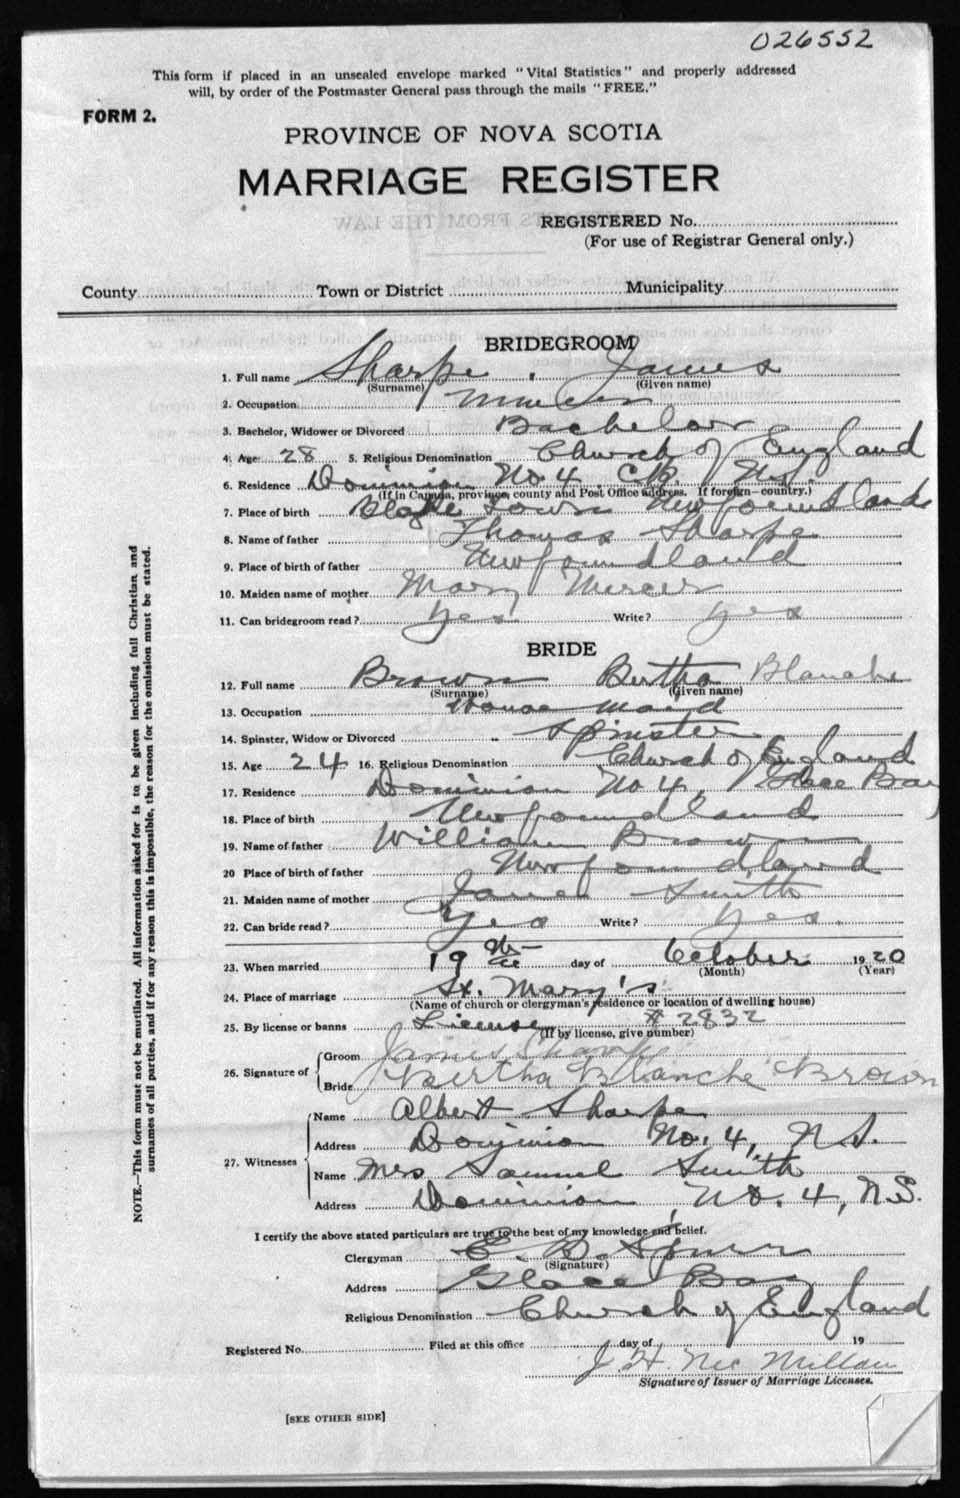 026552
This form if placed in an unsealed envelope marked "Vital Statistics" and properly addressed
will, by order of the Postmaster General pass through the mails "FREE."
FORM 2.
PROVINCE OF NOVA SCOTIA
MARRIAGE REGISTER
REGISTERED No.
(For use of Registrar General only.)
County Town or District Municipality
BRIDEGROOM
1. Full name Sharpe, James
(Surname) (Given name)
2. Occupation
3. Bachelor, Widower or Divorced Bachelor
4. Age 28 5. Religious Denomination Church of England
6. Residence Dominion No. 4, C.B. N.S.
(If in Canada, province, county and Post Office address. If foreign—country.)
7. Place of birth Town Newfoundland
8. Name of father Thomas Sharpe
9. Place of birth of father Newfoundland
10. Maiden name of mother Mary Mercer
11. Can bridegroom read? Yes Write? Yes
BRIDE
12. Full name Brown Bertha Blanche
(Surname) (Given name)
13. Occupation House Maid
14. Spinster, Widow or Divorced Spinster
15. Age 24 16. Religious Denomination Church of England
17. Residence Dominion No 4, Glace Bay
18. Place of birth Newfoundland
19. Name of father William Brown
20 Place of birth of father Newfoundland
21. Maiden name of mother Jane Smith
22. Can bride read? Yes Write? Yes.
23. When married 19th day of October 1920
(Month) (Year)
24. Place of marriage St. Mary's
(Name of church or clergyman's residence or location of dwelling house)
25. By license or banns License # 2832
(If by license, give number)
26. Signature of
Groom James Sharpe
Bride Bertha Blanche Brown
27. Witnesses
Name Albert Sharpe
Address Dominion No. 4, N.S.
Name Mrs Samuel Smith
Address Dominion, No. 4, N.S.
I certify the above stated particulars are true to the best of my knowledge and belief.
Clergyman E. B. Spurr
(Signature)
Address Glace Bay
Religious Denomination Church of England
Registered No. Filed at this office day of 19
J. H. McMillan
Signature of Issuer of Marriage Licenses.
[SEE OTHER SIDE]
NOTE.—This form must not be mutilated. All information asked for is to be given including full Christian and
surnames of all parties, and if for any reason this is impossible, the reason for the omission must be stated.